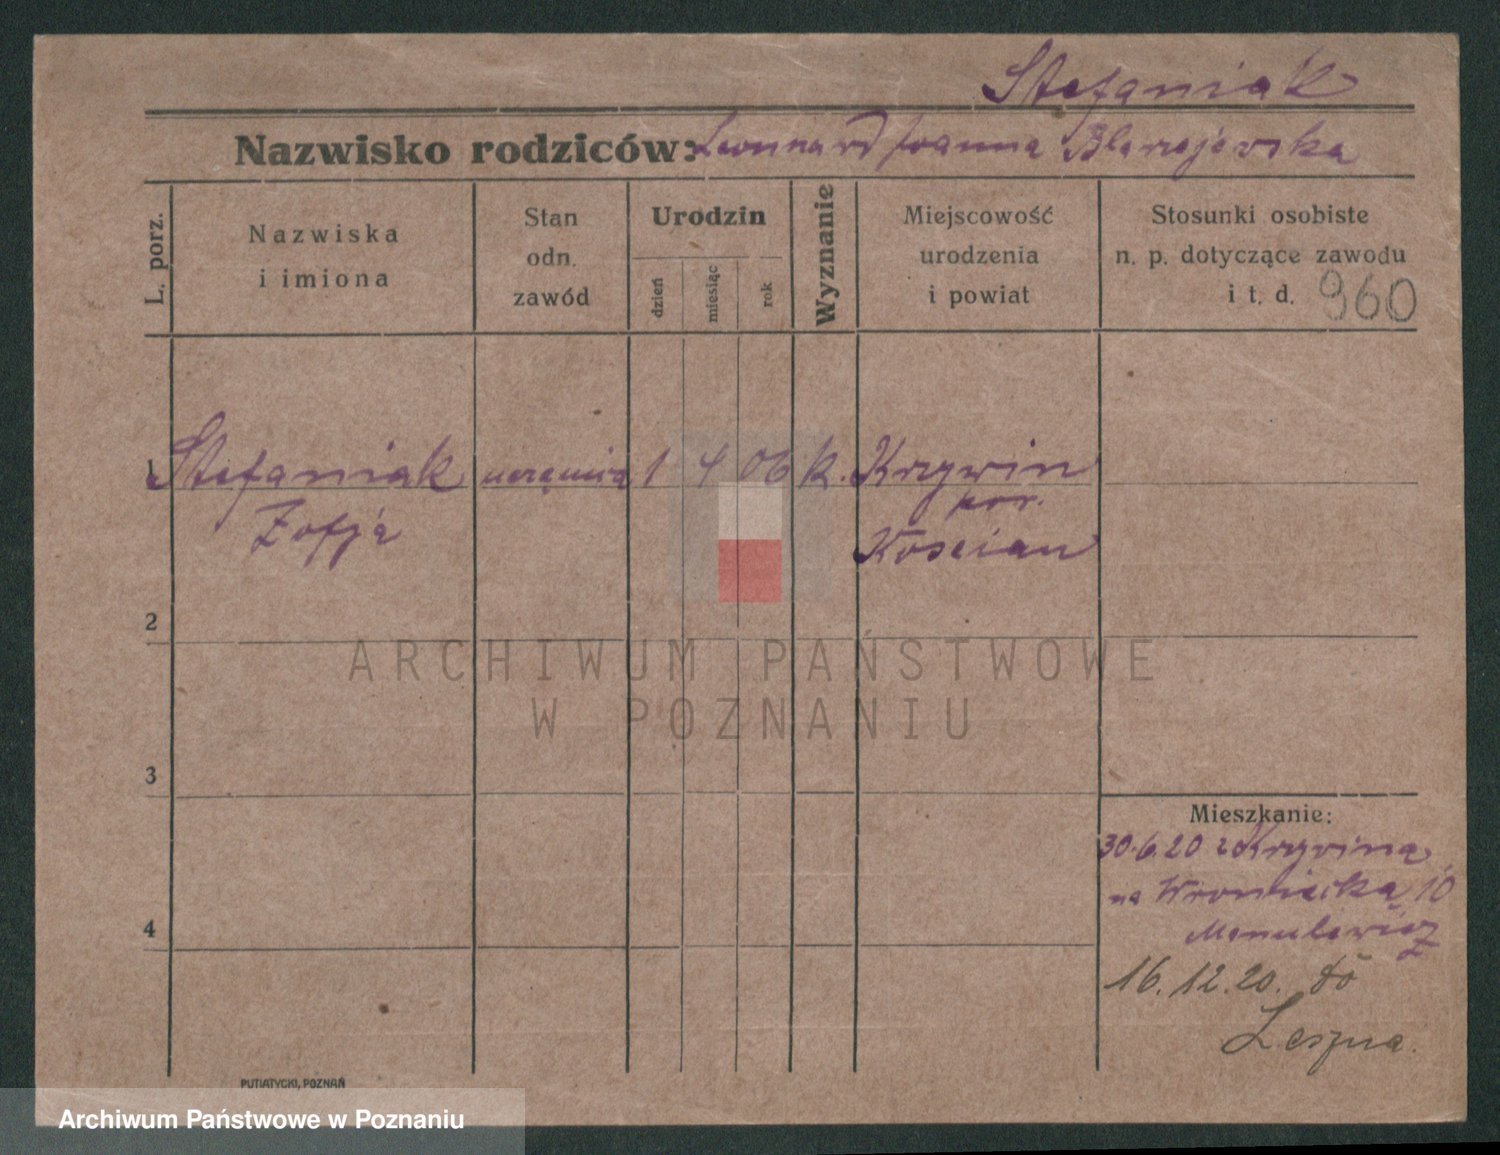 Stefaniak
Nazwisko rodziców: Leonnard Joanna Blarzejevska
L. porz.
Nazwiska
i imiona
Stan
odn.
zawód
Urodzin
dzień
miesiąc
rok
Wyznanie
Miejscowość
urodzenia
i powiat
Stosunki osobiste
n. p. dotyczące zawodu
i t. d. 960
1 Stefaniak 1 4 06 k. Krzywin
Zofja pow.
Kościan
2
3
4
ARCHIWUM PAŃSTWOWE
W POZNANIU
Mieszkanie:
30.6.20 z Krzyvina
na Wroniecka 10
16.12.20. do
Leszna.
PUTIATYCKI, POZNAŃ
Archiwum Państwowe w Poznaniu